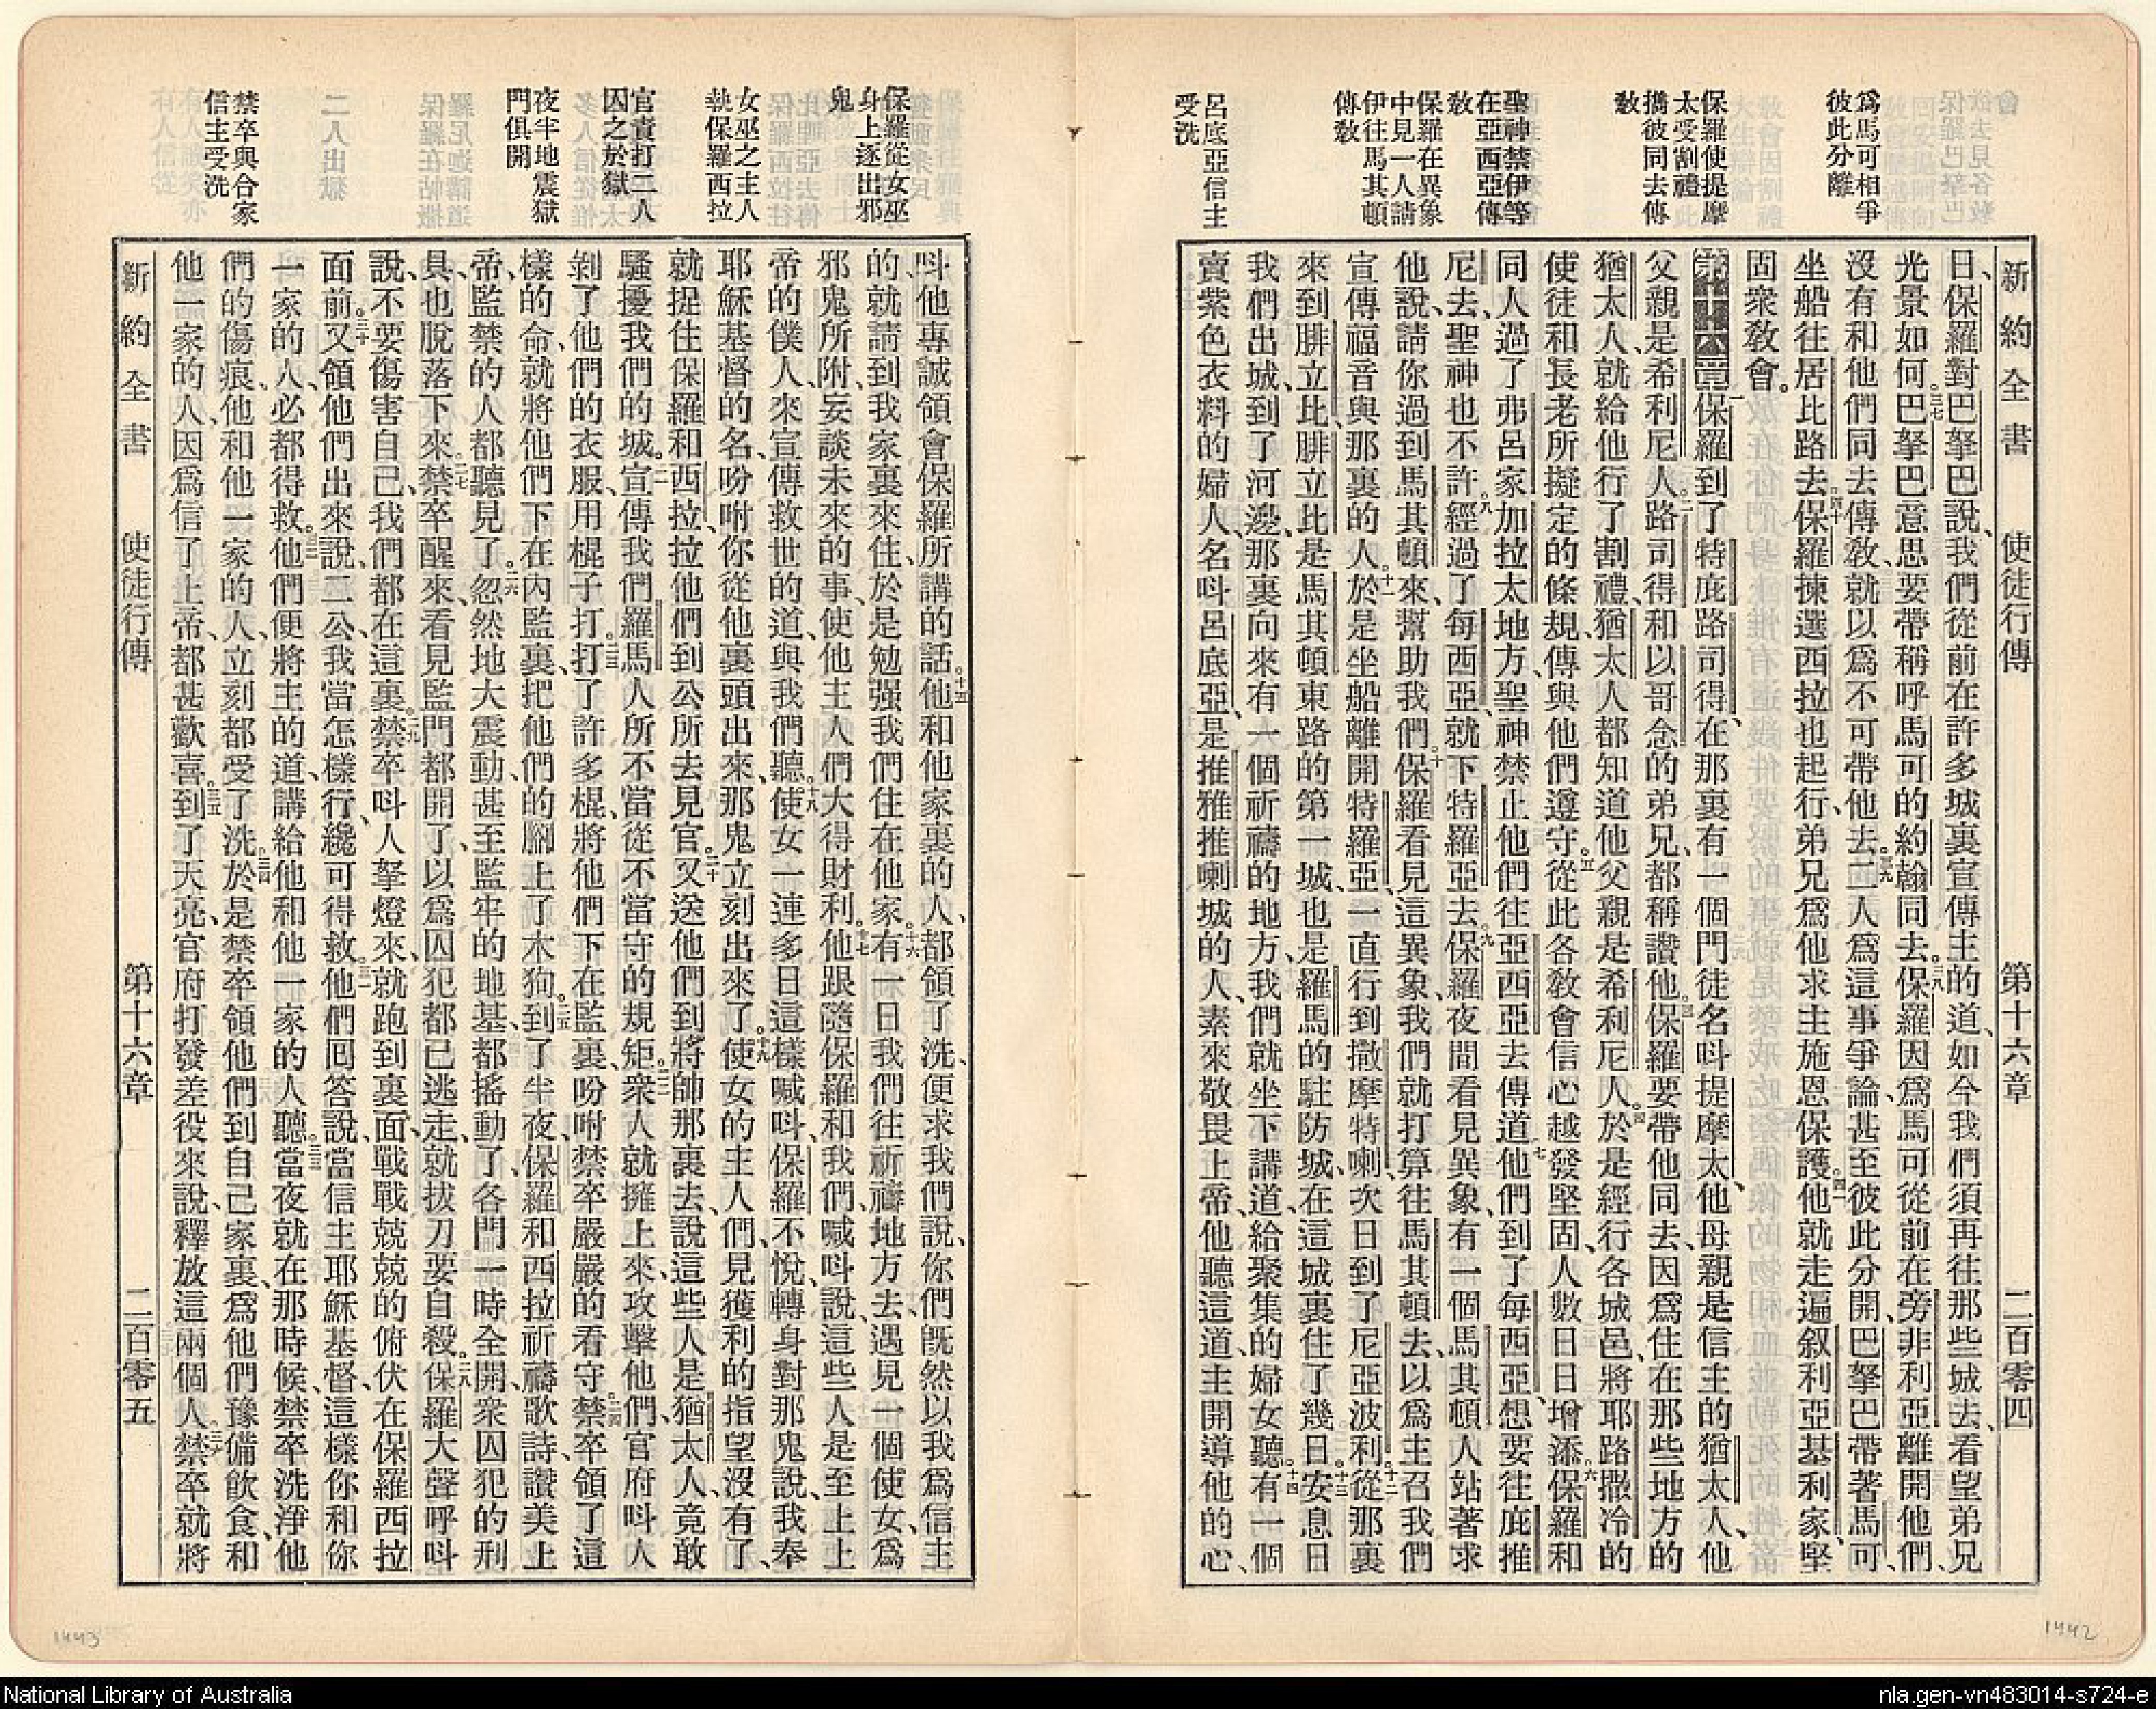 爲馬可相爭
彼此分離
保羅使提摩
太受割禮
攜彼同去傳
敎
聖神禁伊等
在亞西亞傳
敎
保羅在異象
中見一人請
伊往馬其頓
傳敎
呂底亞信主
受洗
新約全書 使徒行傳 第十六章 二百零四
日、保羅對巴拏巴說、我們從前在許多城裏宣傳主的道、如今我們須再往那些城去、看望弟兄
光景如何。三七巴拏巴意思要帶稱呼馬可的約翰同去。三八保羅因爲馬可從前在旁非利亞離開他們、
沒有和他們同去傳敎、就以爲不可帶他去。三九二人爲這事爭論、甚至彼此分開、巴拏巴帶著馬可
坐船往居比路去。四十保羅揀選西拉也起行、弟兄爲他求主施恩保護。四一他就走遍叙利亞基利家、堅
固衆敎會。
第十六章一保羅到了特庇路司得、在那裏有一個門徒名呌提摩太、他母親是信主的猶太人、他
父親是希利尼人。二路司得和以哥念的弟兄、都稱讚他。三保羅要帶他同去、因爲住在那些地方的
猶太人、就給他行了割禮、猶太人都知道他父親是希利尼人。四於是經行各城邑、將耶路撒冷的
使徒和長老所擬定的條規、傳與他們遵守。五從此各敎會信心越發堅固、人數日日增添。六保羅和
同人過了弗呂家加拉太地方、聖神禁止他們往亞西亞去傳道。七他們到了每西亞、想要往庇推
尼去、聖神也不許。八經過了每西亞、就下特羅亞去。九保羅夜間看見異象、有一個馬其頓人站著求
他說、請你過到馬其頓來、幫助我們。十保羅看見這異象、我們就打算往馬其頓去、以爲主召我們
宣傳福音與那裏的人。十一於是坐船離開特羅亞、一直行到撒摩特喇、次日到了尼亞波利。十二從那裏
來到腓立比、腓立比是馬其頓東路的第一城、也是羅馬的駐防城、在這城裏住了幾日。十三安息日
我們出城、到了河邊、那裏向來有一個祈禱的地方、我們就坐下講道給聚集的婦女聽。十四有一個
賣紫色衣料的婦人、名呌呂底亞、是推雅推喇城的人、素來敬畏上帝、他聽這道、主開導他的心、
保羅從女巫
身上逐出邪
鬼
女巫之主人
執保羅西拉
官責打二人
囚之於獄
夜半地震獄
門俱開
禁卒與合家
信主受洗
呌他專誠領會保羅所講的話。十五他和他家裏的人、都領了洗、便求我們說、你們旣然以我爲信主
的、就請到我家裏來住、於是勉强我們住在他家。十六有一日我們往祈禱地方去、遇見一個使女、爲
邪鬼所附、妄談未來的事、使他主人們大得財利。十七他跟隨保羅和我們、喊呌說、這些人是至上上
帝的僕人、來宣傳救世的道、與我們聽。十八使女一連多日這樣喊呌、保羅不悅、轉身對那鬼說、我奉
耶穌基督的名、吩咐你從他裏頭出來、那鬼立刻出來了。十九使女的主人們、見獲利的指望沒有了、
就捉住保羅和西拉、拉他們到公所去見官。二十又送他們到將帥那裏去、說、這些人是猶太人、竟敢
騷擾我們的城。二一宣傳我們羅馬人所不當從不當守的規矩。二二衆人就擁上來、攻擊他們、官府呌人
剝了他們的衣服、用棍子打。二三打了許多棍、將他們下在監裏、吩咐禁卒嚴嚴的看守。二四禁卒領了這
樣的命、就將他們下在內監裏、把他們的腳上了木狗。二五到了半夜、保羅和西拉祈禱歌詩、讚美上
帝、監禁的人都聽見了。二六忽然地大震動、甚至監牢的地基、都搖動了、各門一時全開、衆囚犯的刑
具、也脫落下來。二七禁卒醒來、看見監門都開了、以爲囚犯都已逃走、就拔刀要自殺。二八保羅大聲呼呌
說、不要傷害自己、我們都在這裏。二九禁卒呌人拏燈來、就跑到裏面、戰戰兢兢的俯伏在保羅西拉
面前。三十又領他們出來、說、二公、我當怎樣行、纔可得救。三一他們回答說、當信主耶穌基督、這樣你和你
一家的人、必都得救。三二他們便將主的道、講給他和他一家的人聽。三三當夜就在那時候、禁卒洗淨他
們的傷痕、他和他一家的人、立刻都受了洗。三四於是禁卒領他們到自己家裏、爲他們豫備飲食、和
他一家的人、因爲信了上帝、都甚歡喜。三五到了天亮、官府打發差役來說、釋放這兩個人。三六禁卒就將
新約全書 使徒行傳 第十六章 二百零五
1443
1442
National Library of Australia
nla.gen-vn483014-s724-e